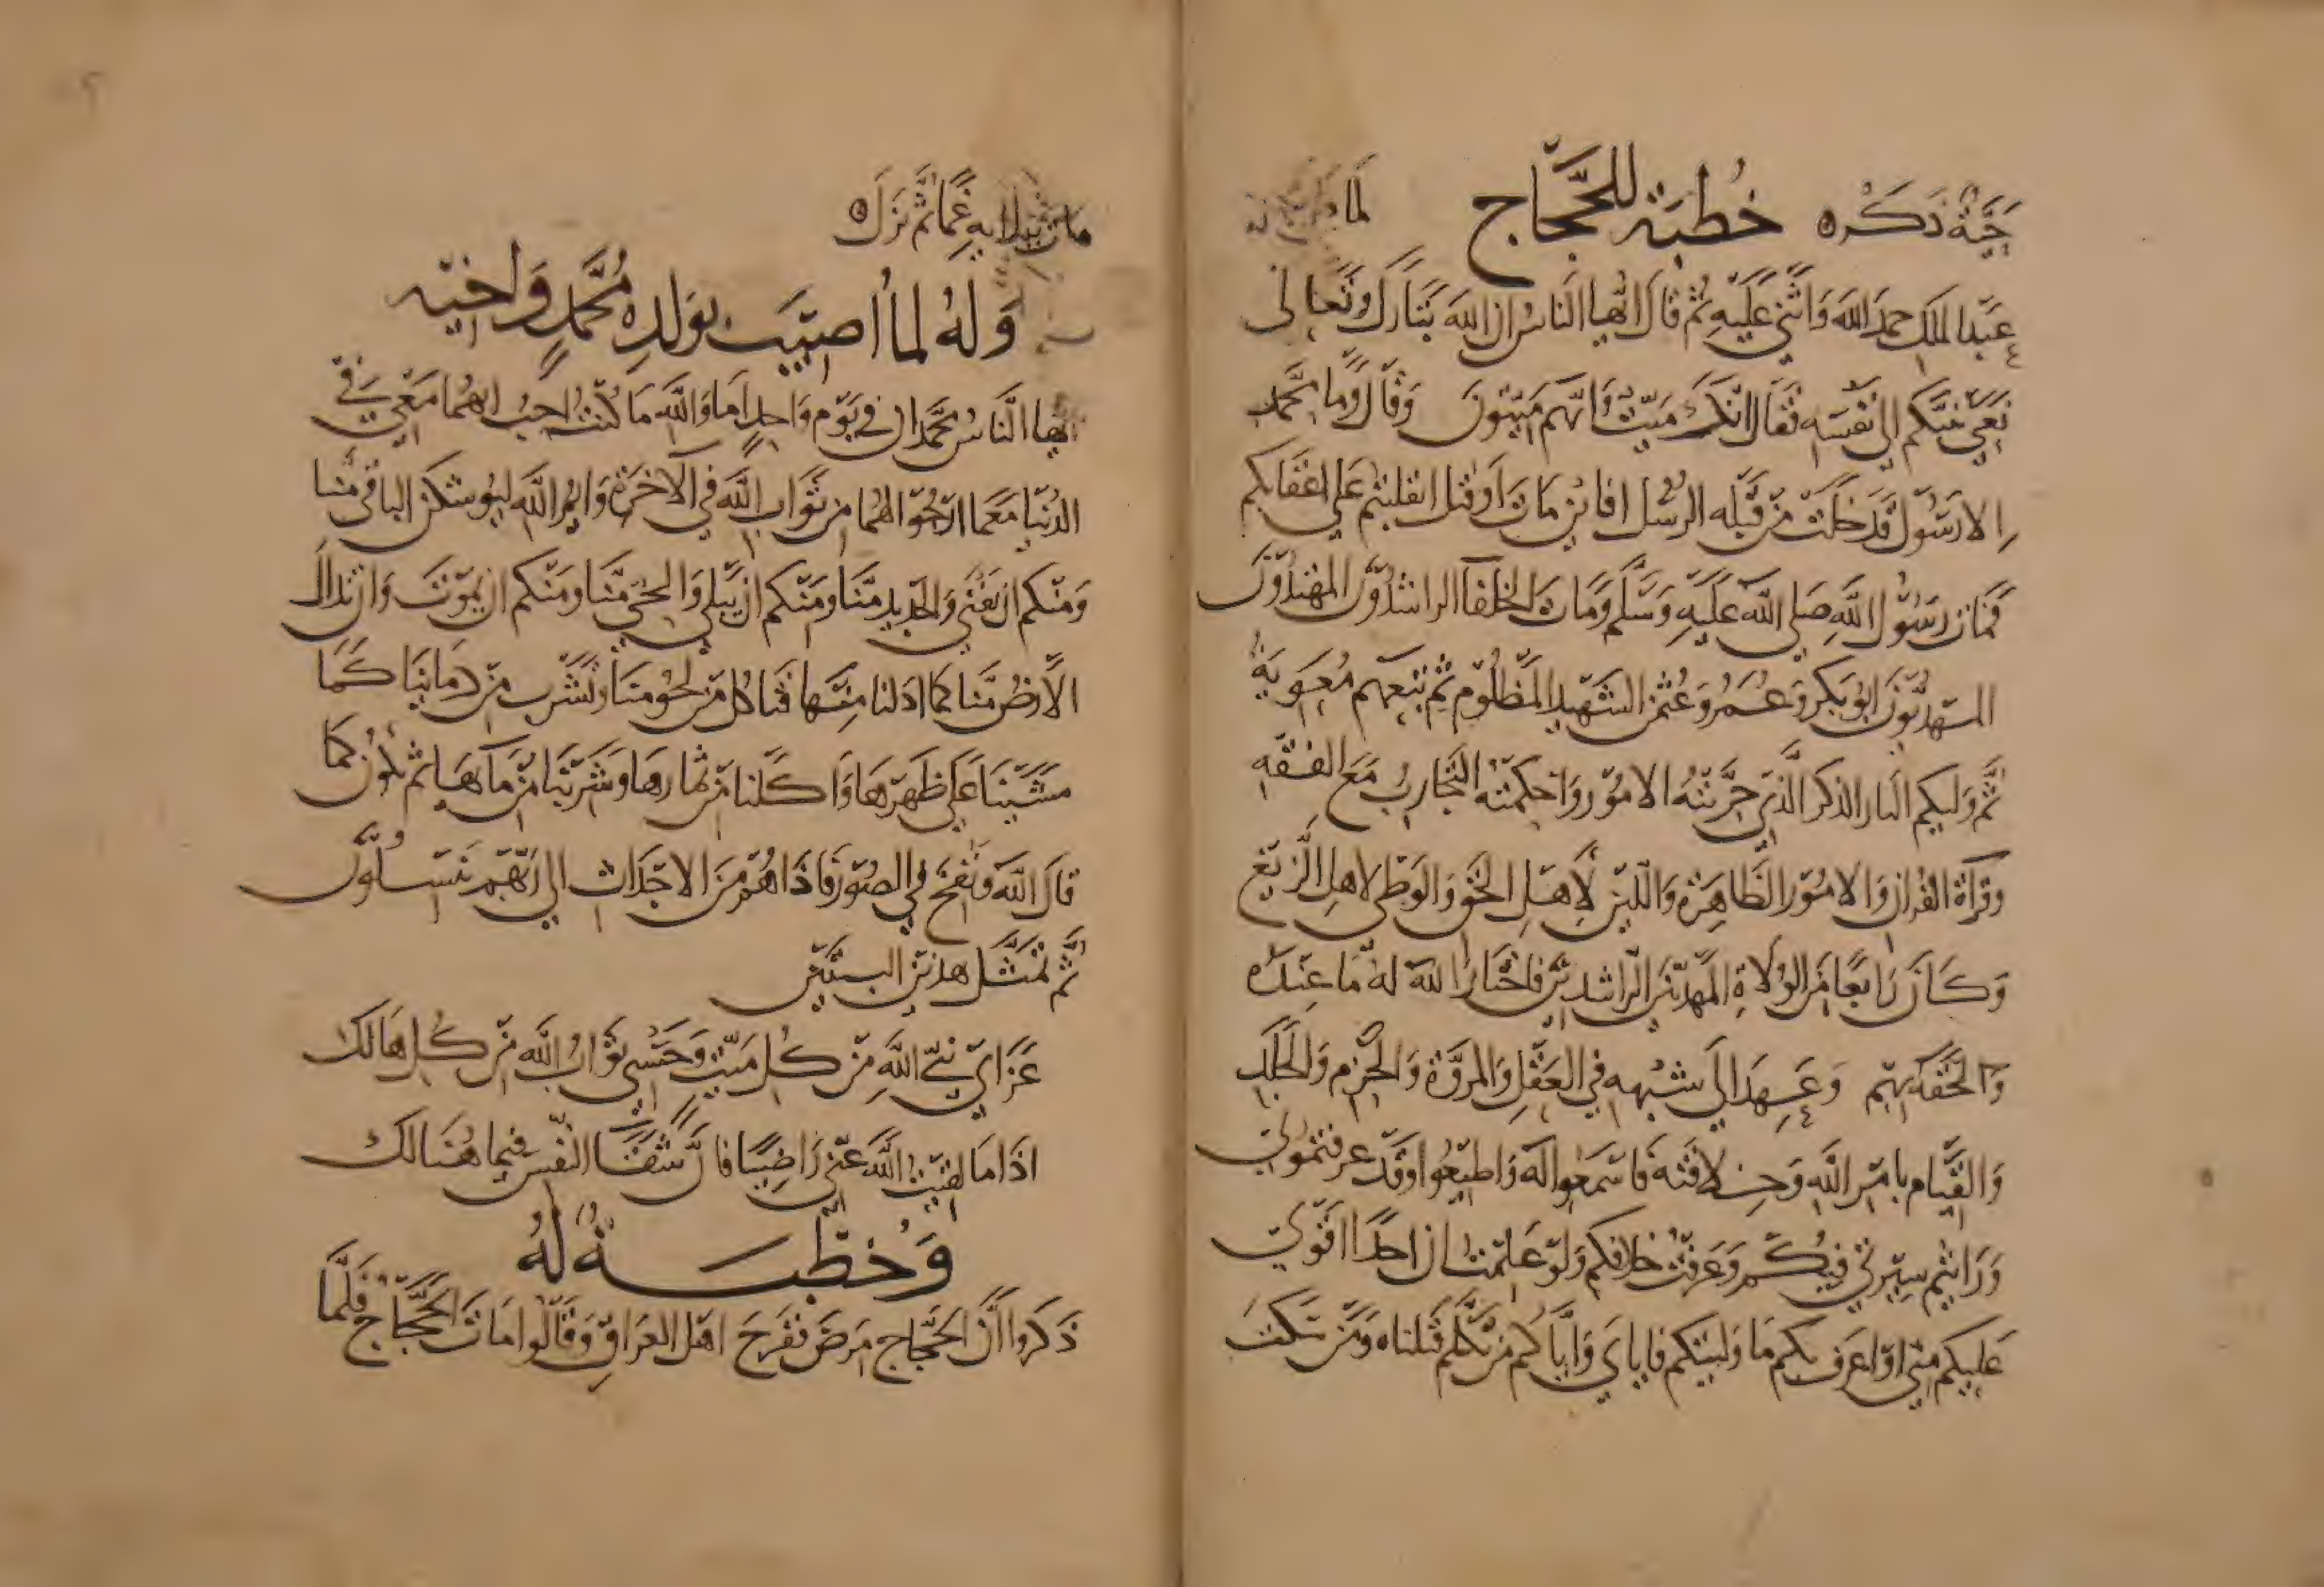 حَيَّةُ ذَكَره خُطبَة للحَجَّاج لما
عَبد الملك حمدَ اللهَ وَاثنى عَليهِ ثُم قالَ ايُّها الناسُ ان اللهَ تبَارَكَ وَتَعالى
نَعى نبيَّكم الى نَفسه فقَال انَّكَ مَيّتٌ وَانّهم مَيّتونَ وَقَالَ وَما محَّمد
الا رَسُولٌ قَد خَلَت من قَبله الرسُل افائن مَاتَ اَو قتل انقلبتم عَلى اعقابكم
فمَات رَسُولُ اللهِ صَلى الله عَليهِ وَسَلَّم وَمَاتَ الخلفآ الراشدُونَ المهتدُونَ
المهديّونَ ابُو بَكر وَعُمَرُ وَعُثمن الشَهيد المَظلُوم ثم تبعهم مُعَويَةُ
ثُم وَليكم البار الذكر الَّذي جرَّبتهُ الامُور وَاحكمتهُ التجَاربُ مَع الفقه
وقرآة القُران وَالامُور الظَاهِرَة وَاللين لِأهَلِ الحَق وَالوَطى لاهلِ الزَيغ
وَكَانَ رَابعًا منَ الوُلاةِ المَهديّينَ الرّاشدينَ فاختارَ اللهَ لهُ مَا عِندَه
وَالحَقَه بهم وَعَهِدَ الى شبهه في العَقلِ وَالمروَّة وَالحَزم وَالجَلَد
وَالقيَام بامر اللهِ وَخلافَته فَاسَمعُوا لَه وَاطيعُوا وقَد عرفتموني
وَرَايتم سِيرتي فيكُم وَعَرفتُ خلافكم وَلَو عَلمتُ ان احدًا اقوى
عَليكم مني اوَ اعرَف بكم مَا وَليتكم فاياي وَايَّاكُم مَن تكلّم قَتلناه وَمَن سَكتَ
مات بدايه غمًا ثُمَّ نزَلَ
وَلهُ لما اُصيبَ بولَدِه مُحَّمدٍ وَاخيه
ايّها النَّاسُ محَّمدان في يَوم وَاحِدٍ امَا وَالله مَا كُنتُ احِبُ انهُما مَعي في
الدُنيا مَعَما ارَجُو لهُما من ثوَاب الله في الآخرَة وَايمُ الله ليُوشكن الباقي منا
وَمنكم ان يَفنَى وَالجَديد منَّا وَمنَكم ان يَبلى وَالحَيّ منَّا وَمنكم ان يَموُتَ وَان تدالَ
الأرضُ منَّا كما ادَلنا مِنَها فتَاكل من لحُومنَا وَتشَرب من دمَائنَا كَمَا
مشَينَا عَلى ظَهَرهَا وَاكَلنا من ثمارهَا وَشَربنَا من مآئهَا ثم نكُونُ كما
قالَ الله وَنفخَ في الصُور فَاذا هُم منَ الاجدَاث الى رَبّهم يَنسلُونَ
ثُمَّ تمثَّل هذين البيتَين
عَزَائي نَبيّ اللهِ من كُل مَيّتٍ وَحَسبي ثوَابُ الله من كُل هَالك
اذَا مَا لقيتُ اللهَ عَني رَاضيًا فانَّ شفَآ النفس فيما هُنَالك
وَخُطبَةُ لهُ
ذَكرُوا أَنَّ الحَجَّاج مَرضَ فَفَرحَ اهل العرَاق وَقَالُوا مَاتَ الحَجَّاج فلمَّا